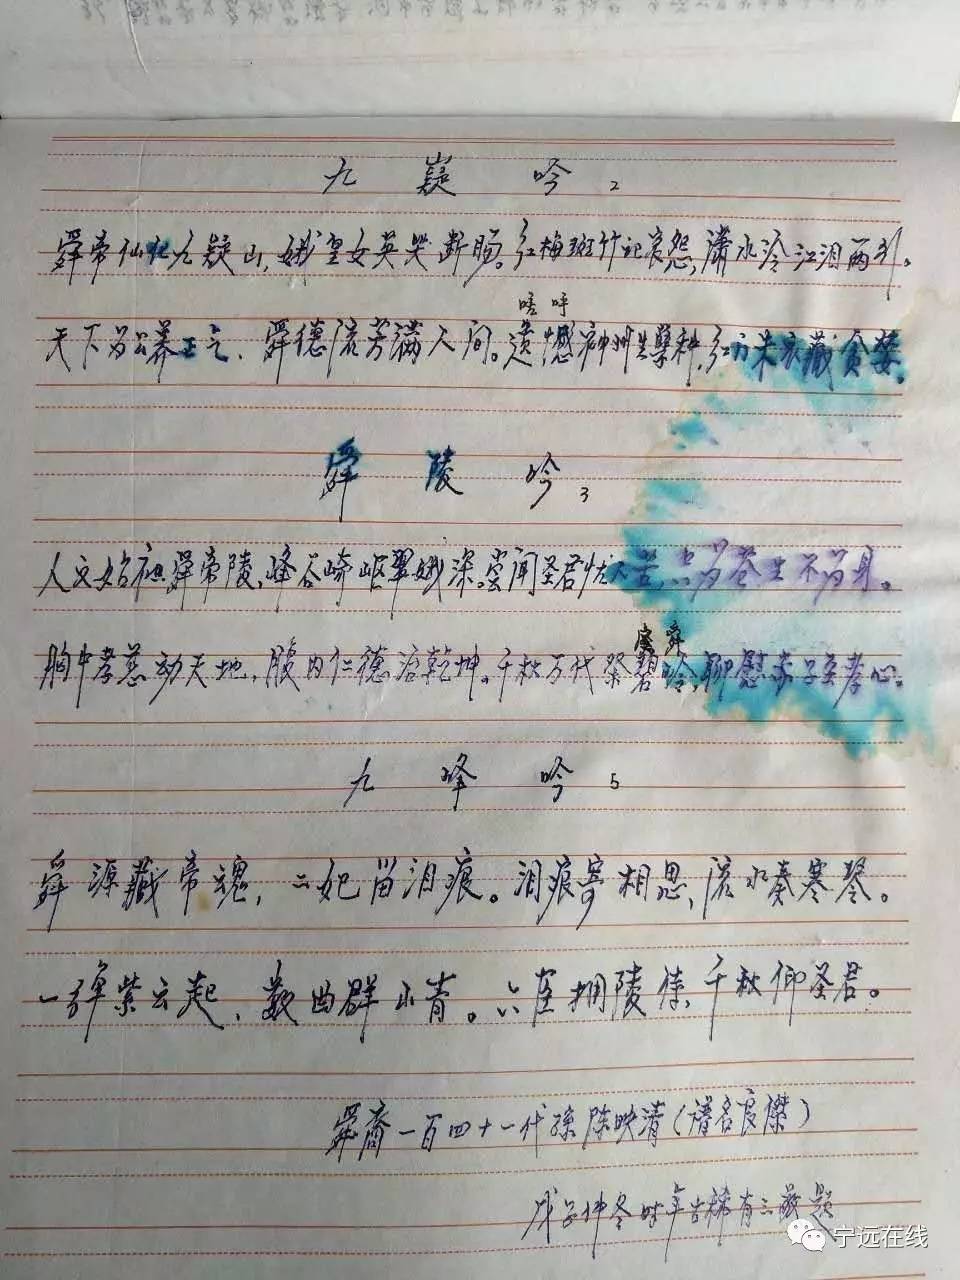 九嶷吟2
舜帝仙化九疑山,娥皇女英哭断肠。红梅斑竹记哀怨,潇水冷江泪两行。
嗟呼
天下为公 舜德流芳满人间。遗憾神州生孽种,红 朱衣藏贪婪。
舜陵吟3
人文始祖舜帝陵,峰谷崎岖翠娥深。尝闻圣君忧人苦,只为苍生不为身。
虞舜
胸中孝慈动天地,腹内仁德沿乾坤。千秋万代祭碧吟,聊慰赤子至孝心。
九峰吟5
舜源藏帝魂,二妃留泪痕。泪痕寄相思,流水奏寒琴。
一弹紫云起,数曲群山青。六 拥陵 ,千秋仰圣君。
舜裔一百四十一代孙陈映清(谱名良傑)
戊子仲冬时年古稀有三敬题
宁远在线